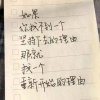 如果
你找不到一个
坚持下去的理由
那就
找一个
重新开始的理由